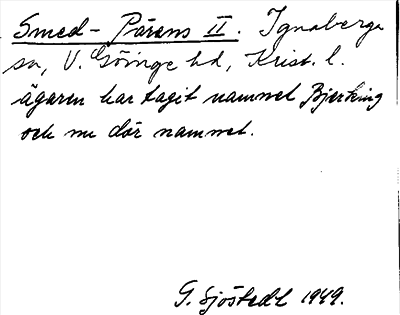 Smed-Pärens II. Ignaberga
sn, V. Göinge hd, Krist. l.
ägaren har tagit namnet Bjerking
och nu dör namnet.
G. Sjöstedt 1949.